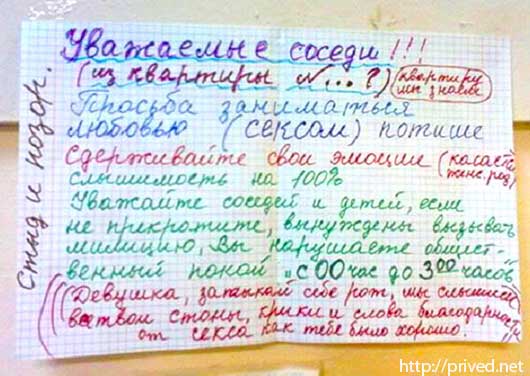 Уважаемые соседи!!!
(из квартиры №...?) (квартиру мы знаем)
Просьба заниматься
любовью (сексом) потише
Сдерживайте свои эмоции (касается
слышимость на 100%
Уважайте соседей и детей, если
не прекратите, вынуждены вызывать
милицию, Вы нарушаете общест-
венный покой "с 00 час до 3 00 часов
(Девушка, затыкай себе рот, мы слышим
все твои стоны, крики и слова благодарности
от секса как тебе было хорошо."
Стыд и позор.
http://prived.net